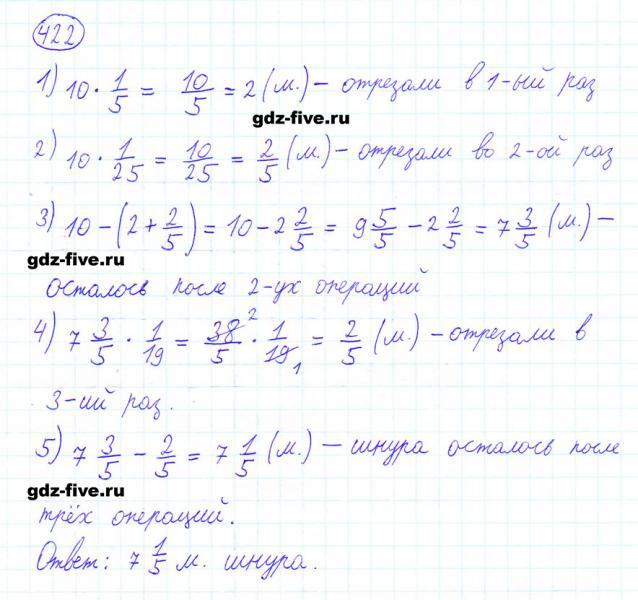 422
1) 10 · 1/5 = 10/5 = 2 (м.) – отрезали в 1-ый раз
gdz-five.ru
2) 10 · 1/25 = 10/25 = 2/5 (м.) – отрезали во 2-ой раз
3) 10 – (2 + 2/5) = 10 – 2 2/5 = 9 5/5 – 2 2/5 = 7 3/5 (м.) –
gdz-five.ru
осталось после 2-ух операций
4) 7 3/5 · 1/19 = 38 2/5 · 1/19 1 = 2/5 (м.) – отрезали в
3-ий раз.
5) 7 3/5 – 2/5 = 7 1/5 (м.) – шнура осталось после
gdz-five.ru
трёх операций.
Ответ: 7 1/5 м. шнура.